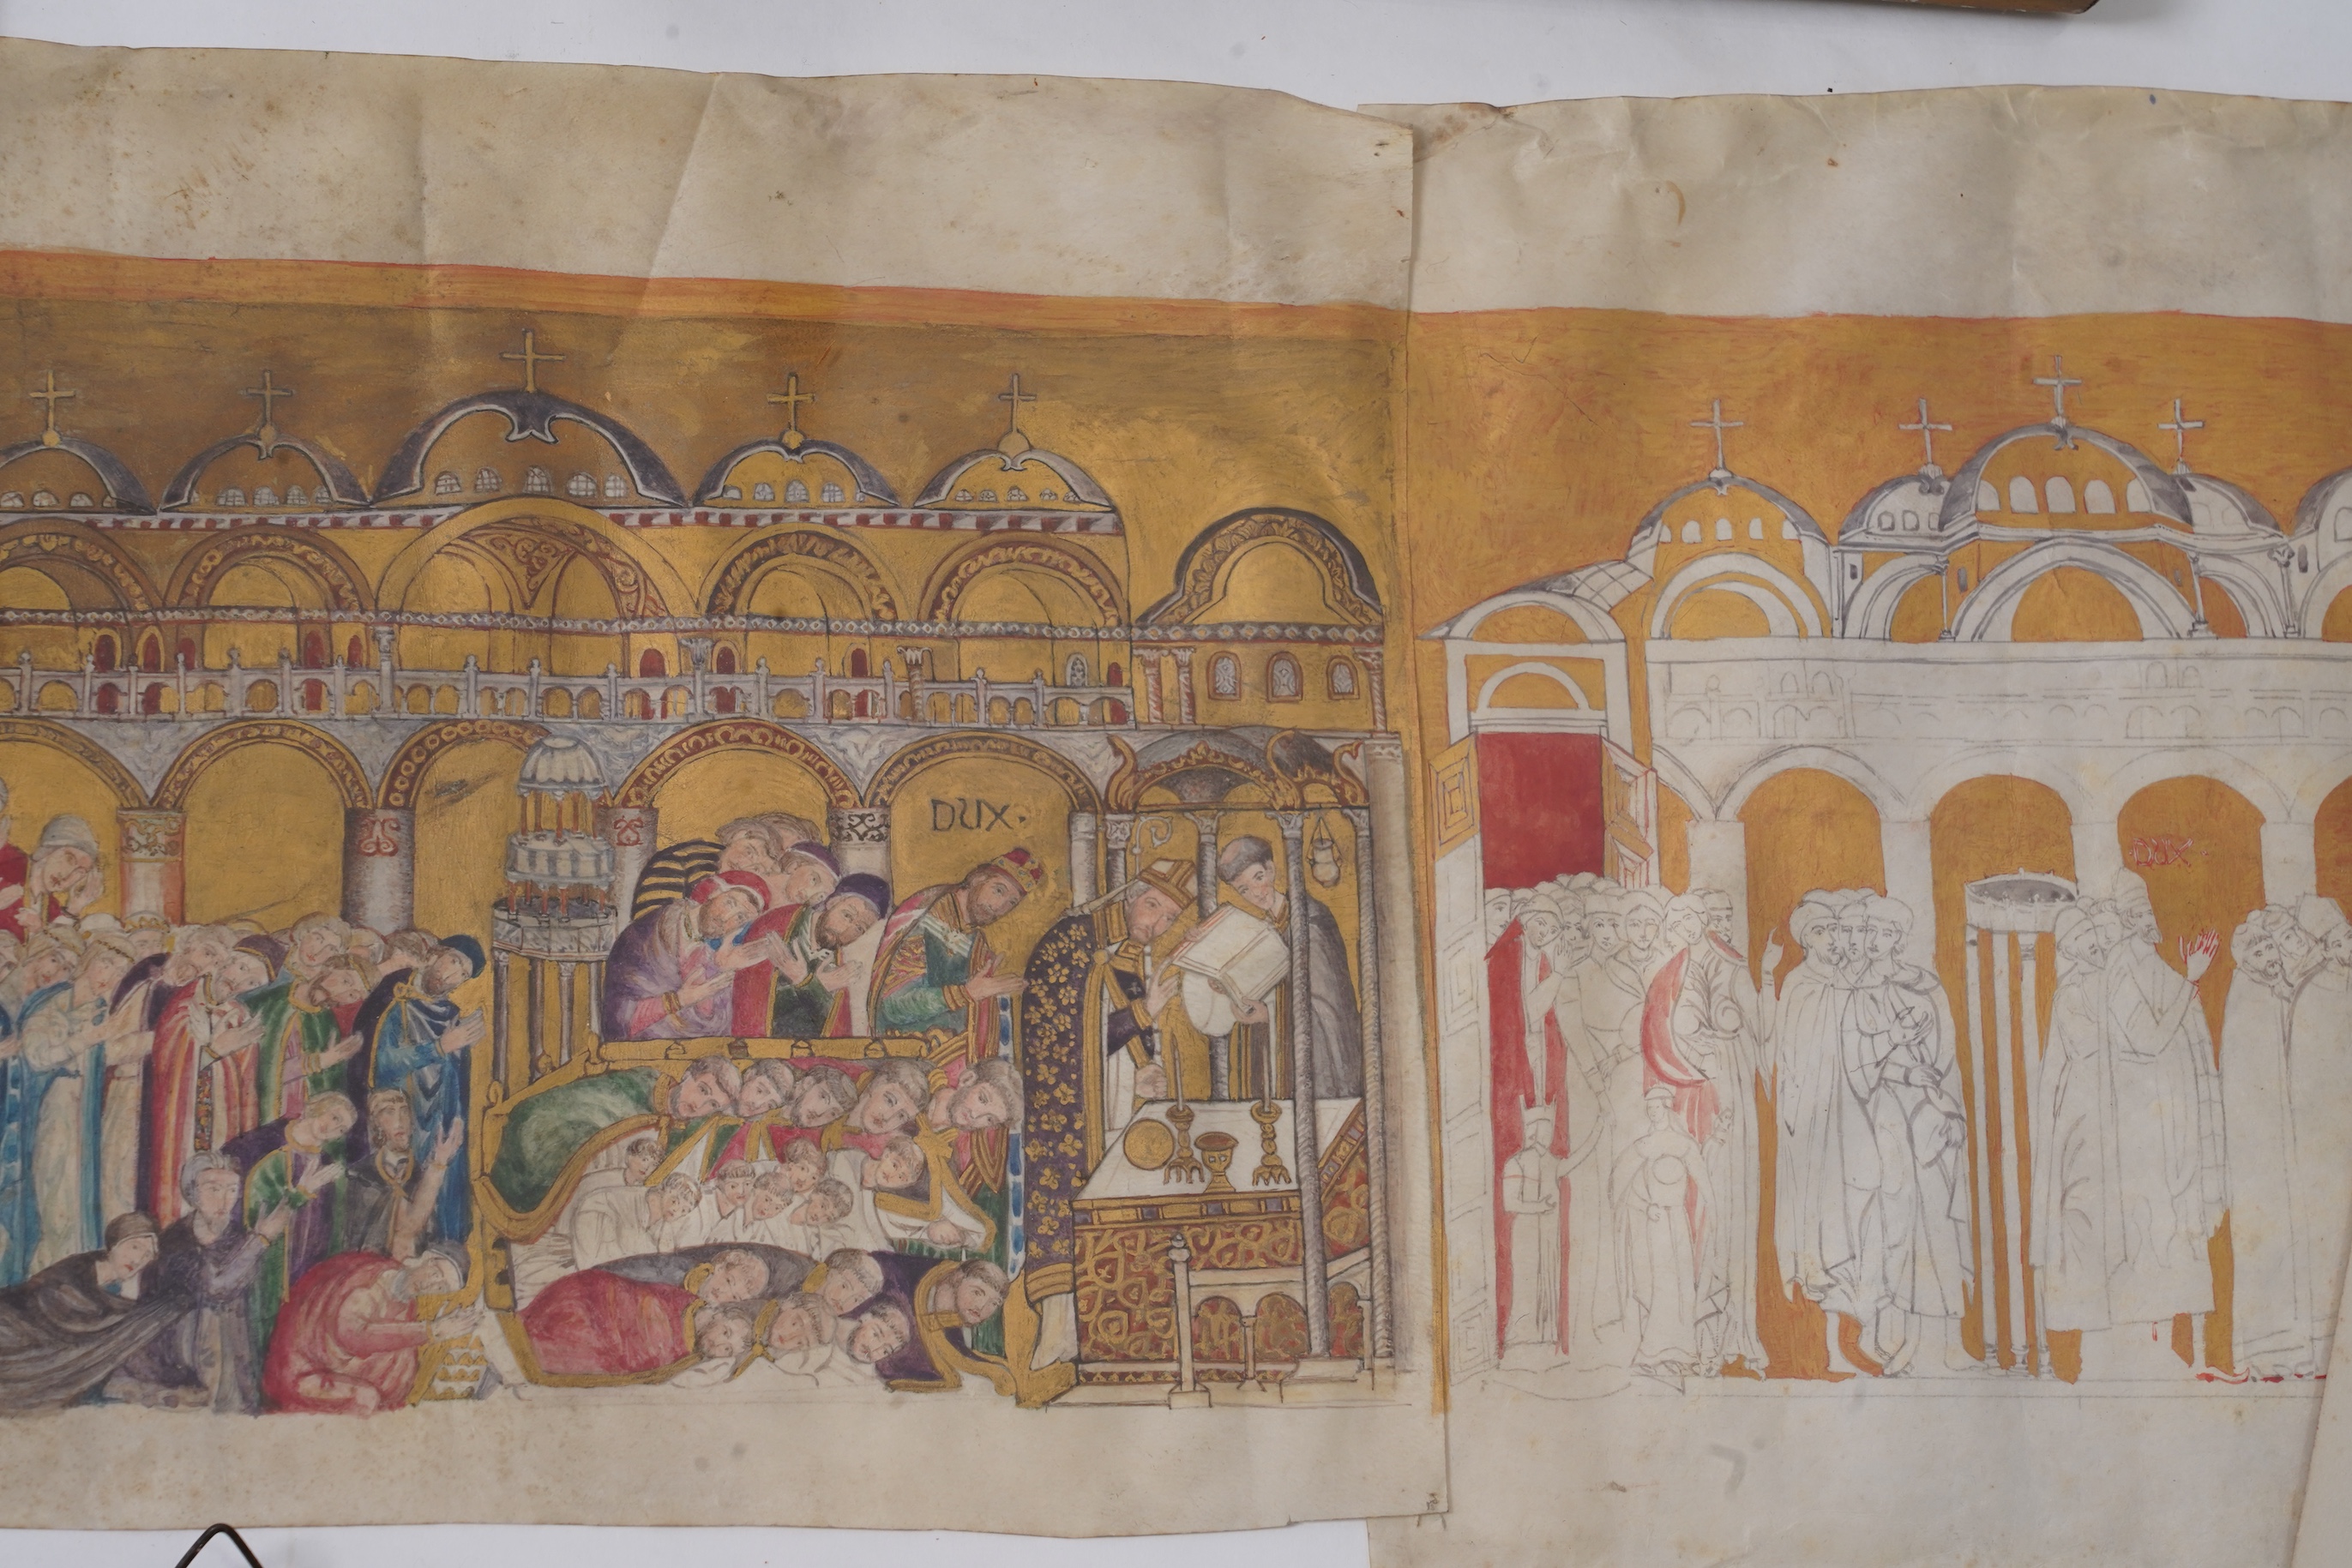 DUX·
DUX·